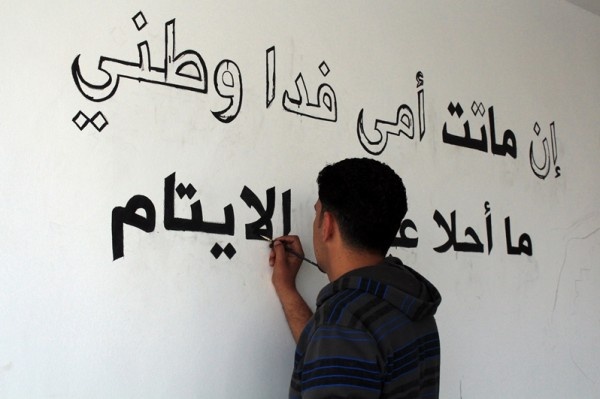 إن ماتت أمى فدا وطني
ما أحلا الايتام